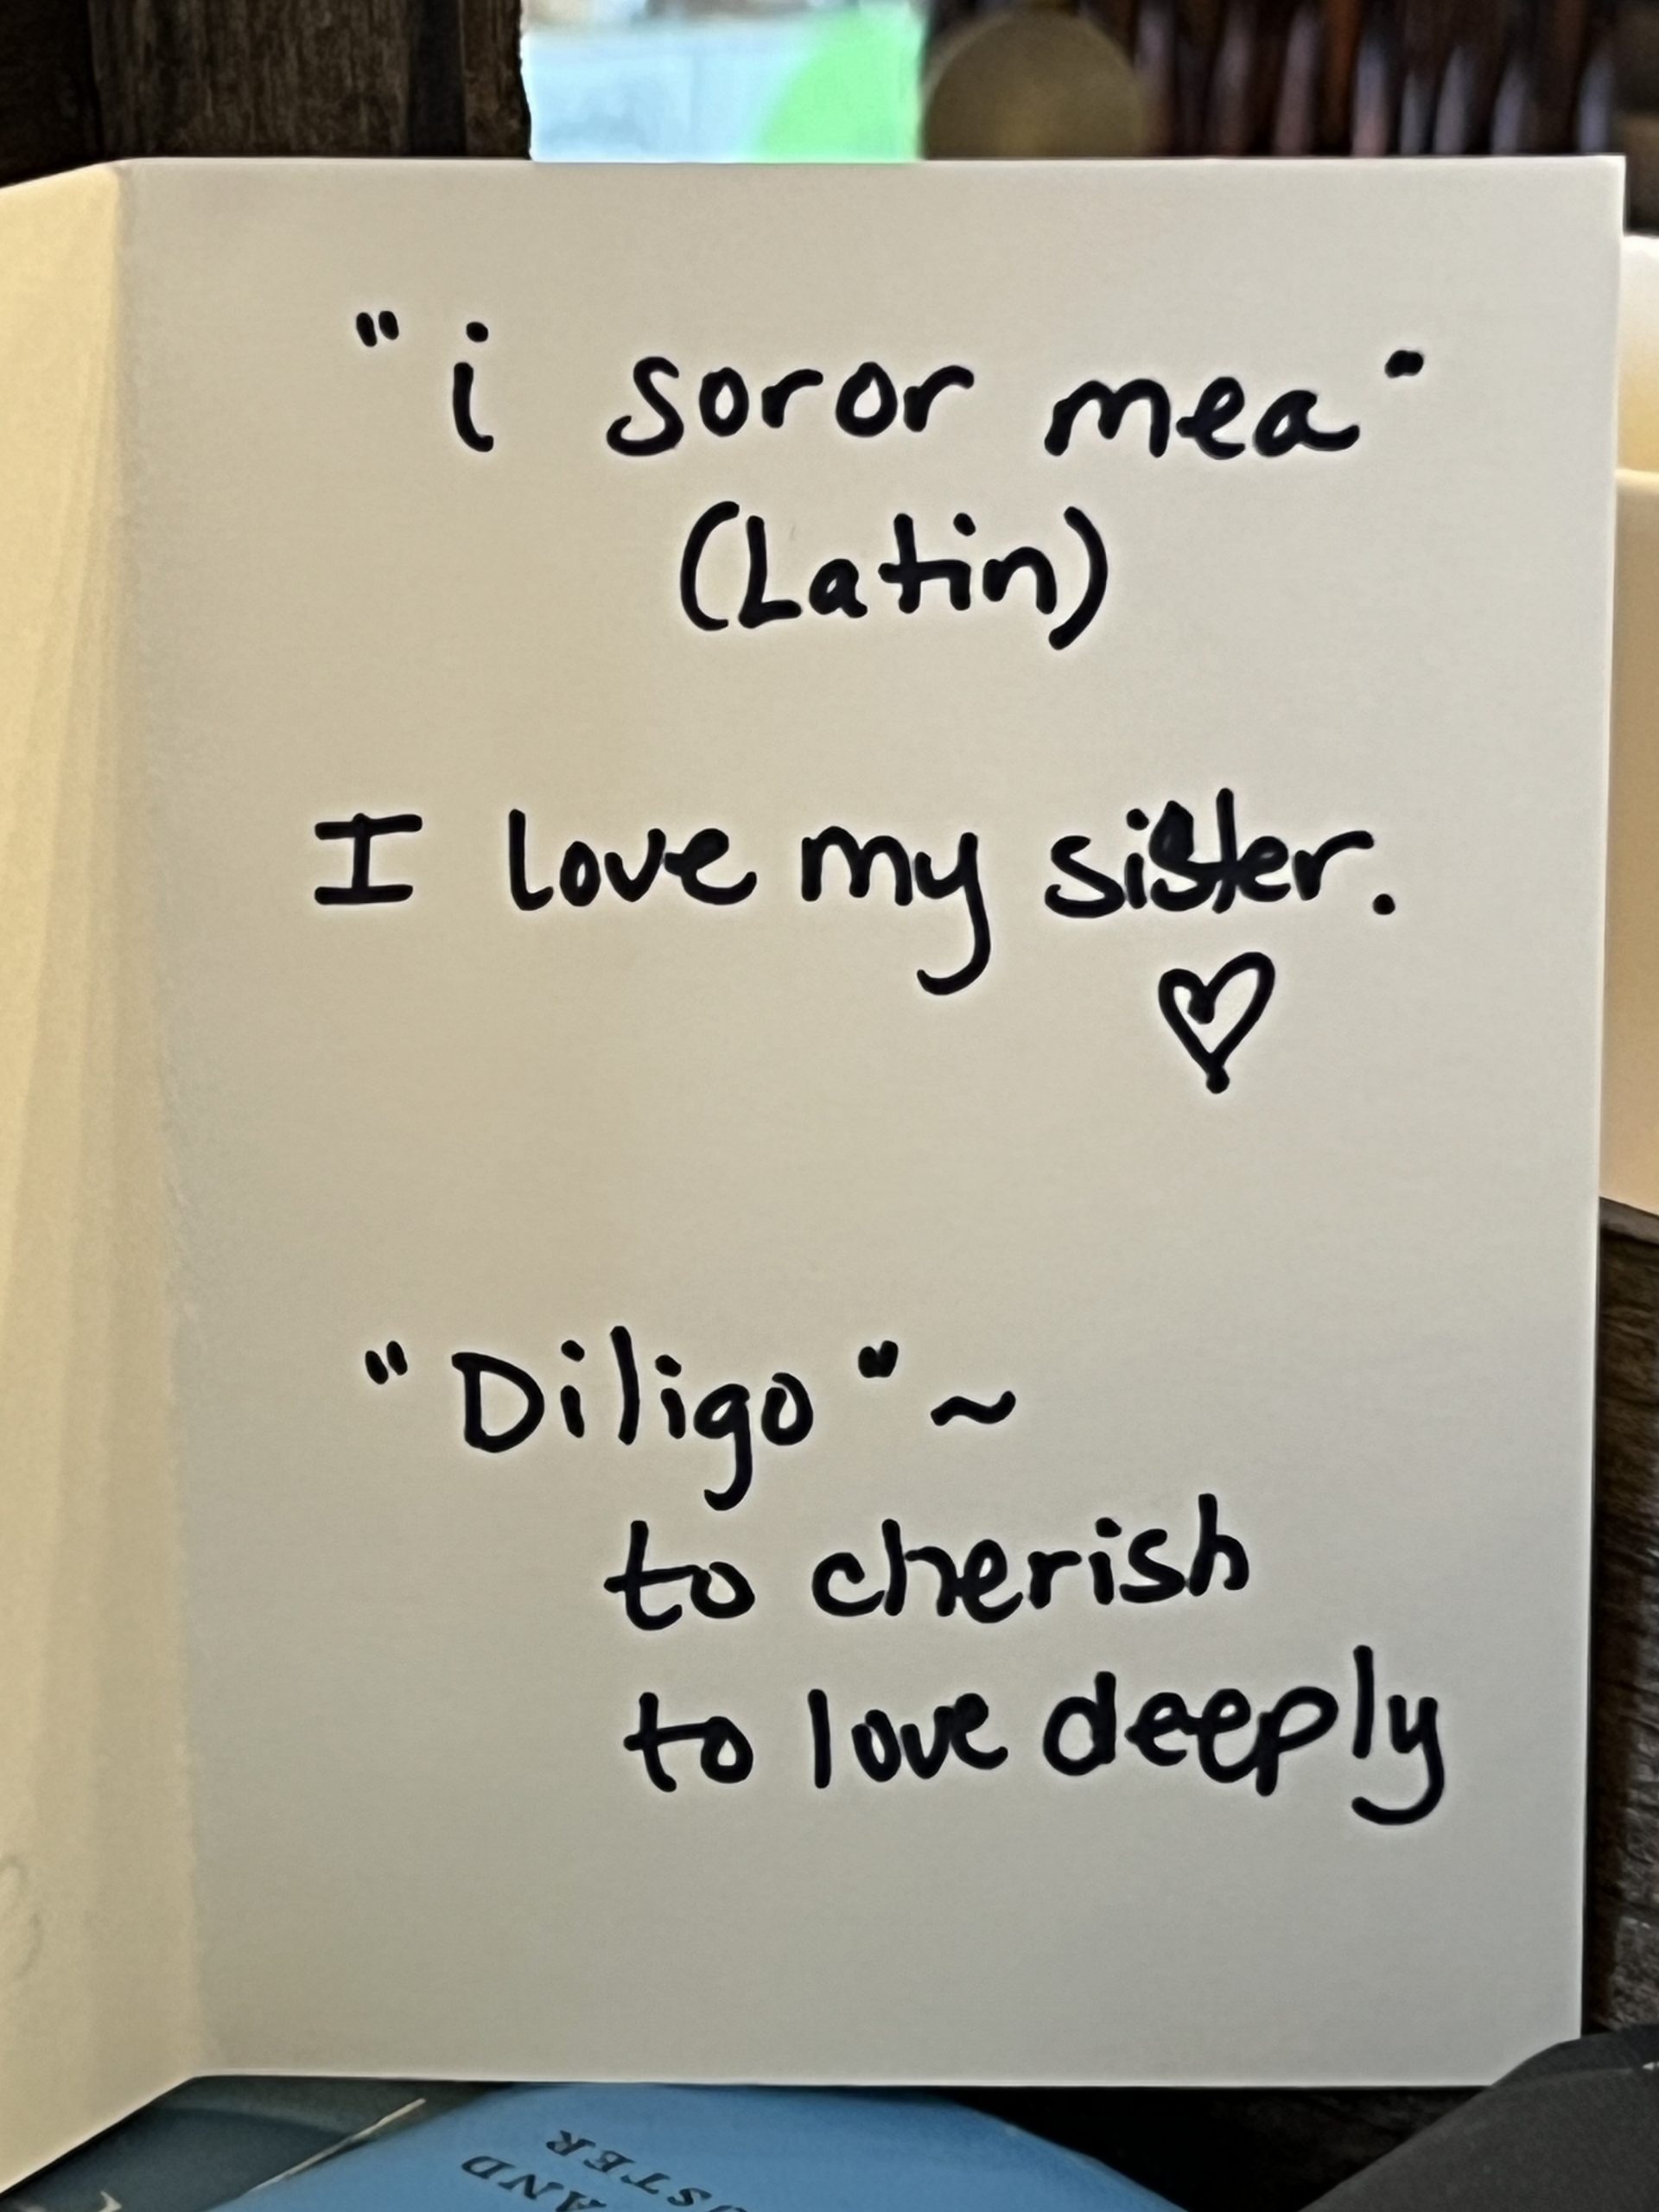 "i soror mea"
(Latin)
I love my sister.
♡
"Diligo" ~
to cherish
to love deeply
AND